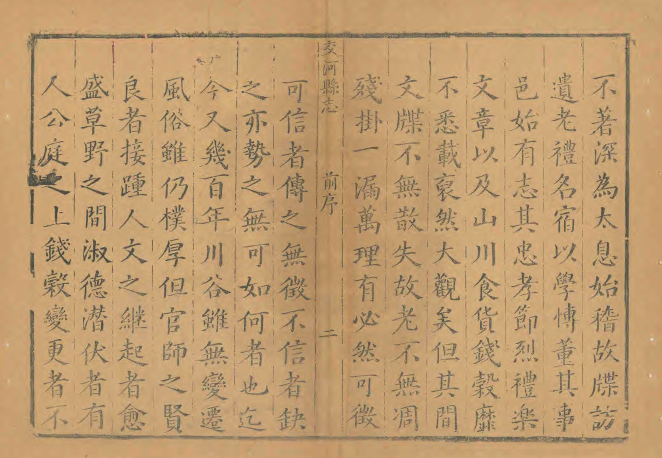 不著深為太息始稽故牒訪
遺老禮名宿以學博董其事
邑始有志其忠孝節烈禮樂
文章以及山川食貨錢穀靡
不悉載裒然大觀矣但其間
文牒不無散失故老不無凋
殘掛一漏萬理有必然可徵
交河縣志 前序 二
可信者傳之無徵不信者缺
之亦勢之無可如何者也迄
今又幾百年川谷雖無變遷
風俗雖仍樸厚但官師之賢
良者接踵人文之継起者愈
盛草野之間淑德潛伏者有
人公庭之上錢穀變更者不